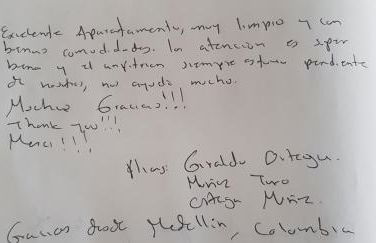 Excelente Apartamento, muy limpio y con
buenas comodidades. la atención es super
buena y el anfitrion siempre estuvo pendiente
de nosotros, nos ayudo mucho.
Muchas Gracias!!!
Thank you!!!
Merci!!!
Giraldo Ortega.
Muñoz Toro
Ortega Muñoz.
Gracias desde Medellín, Colombia